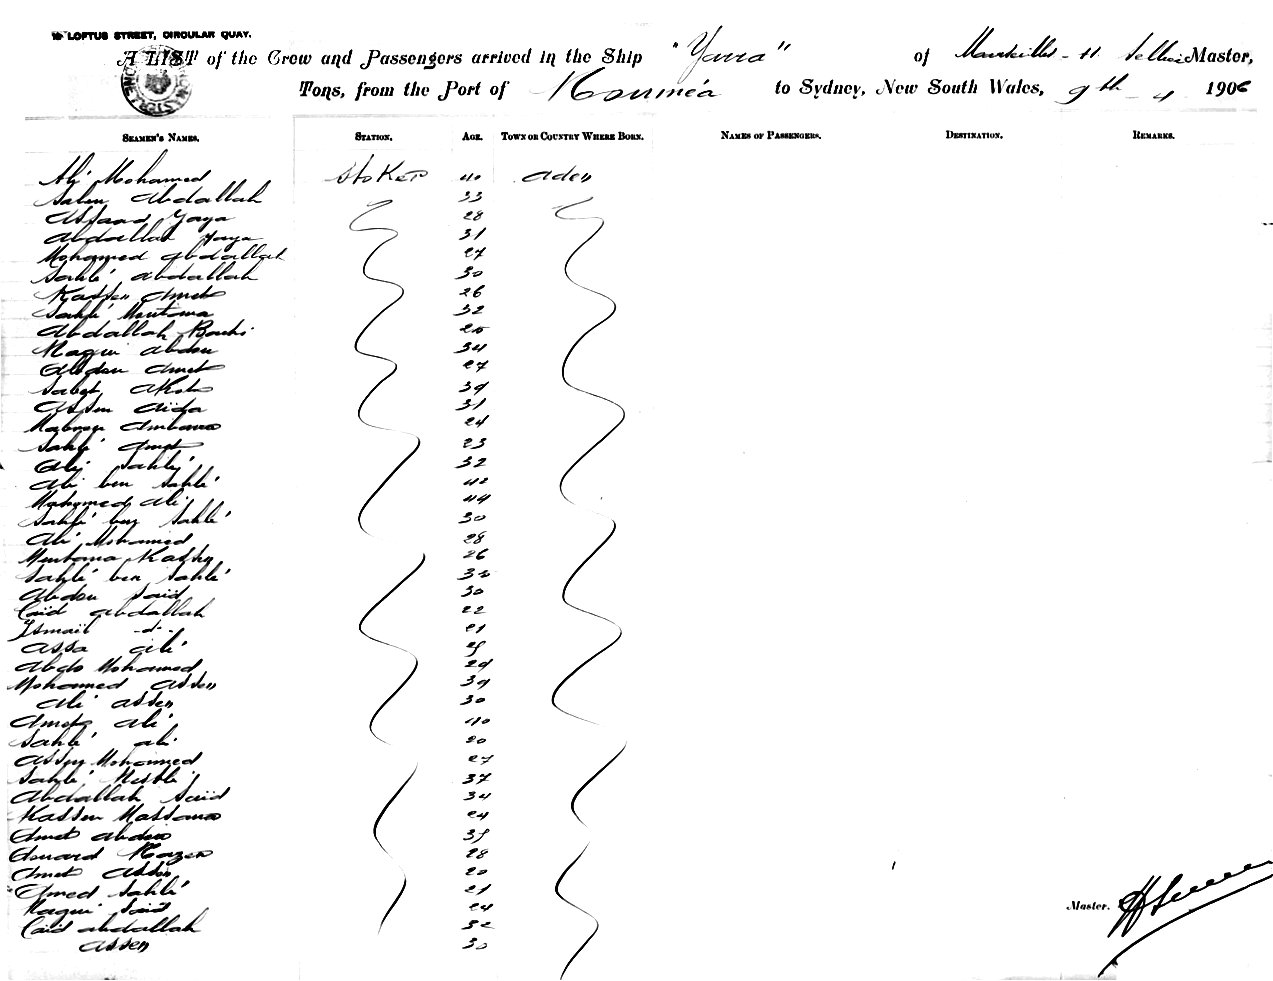 LOFTUS STREET, CIRCULAR QUAY.
A LIST of the Crew and Passengers arrived in the Ship "Yarra" of Marseilles Master,
Tons, from the Port of Nouméa to Sydney, New South Wales, 9th 4 1906
SEAMEN'S NAMES. STATION. AGE. TOWN OR COUNTRY WHERE BORN. NAMES OF PASSENGERS. DESTINATION. REMARKS.
Ali Mohamed Stoker 40 Aden
Salem Abdallah 33
Assaad Yaya 28
Abdallah Yaya 31
Mohamed Abdallah 27
Sahlé Abdallah 30
Kassen Amet 26
Sahlé Mentona 32
Abdallah
Nagui Abdou 34
Abdou Amet 27
39
Assen Aïda 31
24
Sahlé Amet 23
Ali Sahlé 32
Ali ben Sahlé 42
Mohamed Ali 44
Sahlé ben Sahlé 30
Ali Mohamed 28
Mentona Kassen 26
Sahlé ben Sahlé 32
Abdou Saïd 30
Caïd Abdallah 22
Ismaïl -d- 21
Assa Ali
Abdo Mohamed 29
Mohamed Assen 39
Ali Assen 30
Amet Ali 40
Sahlé Ali 20
Assen Mohamed 27
Sahlé 37
Abdallah Saïd 34
Kassen Massana 24
Amet Abdou
Edouard 28
Amet Assen 20
Ahmed Sahlé 21
Nagui Saïd 24
Caïd Abdallah 32
Assen 30
Master.